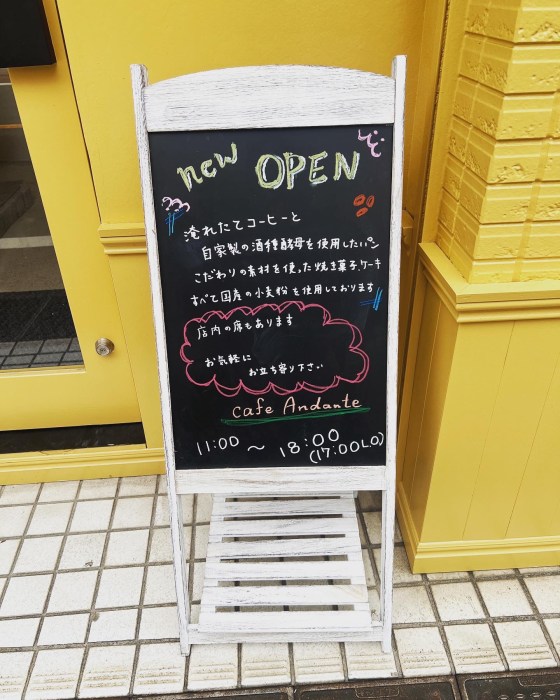 new OPEN
淹れたてコーヒーと
自家製の酒種酵母を使用したパン
こだわりの素材を使った焼き菓子、ケーキ
すべて国産の小麦粉を使用しております
店内の席もあります
お気軽に
お立ち寄り下さい
cafe Andante
11:00 〜 18:00
(17:00LO)